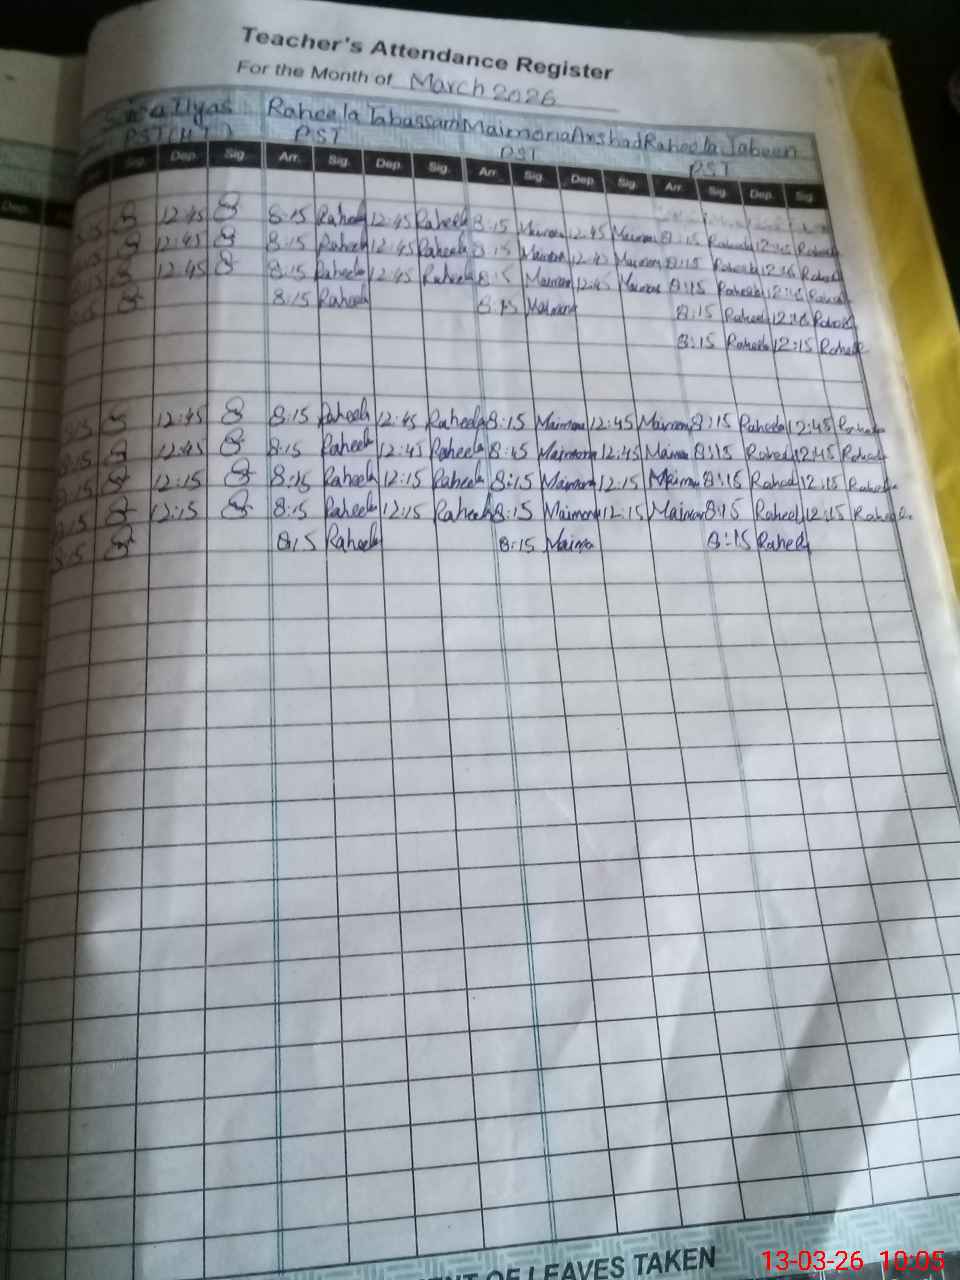 Teacher's Attendance Register
For the Month of March 2026
Ilyas Raheela Tabassam Maimona Arshad Raheela Jabeen
PST(HT) PST PST PST
Dep. Sig. Dep. Sig. Arr. Sig. Dep. Sig. Arr. Sig. Dep. Sig. Arr. Sig. Dep. Sig.
12:45 8:15 Raheela 12:45 Raheela 8:15 Maimona 12:45 Maimona 8:15 Raheela Raheela
12:45 8:15 Raheela 12:45 Raheela 8:15 Maimona 12:45 Maimona 8:15 Raheela Raheela
12:45 8:15 Raheela 12:45 Raheela 8:15 Maimona 12:45 Maimona 8:15 Raheela
8:15 Raheela 8:15 Maimona 8:15 Raheela
8:15 Raheela 12:15 Raheela
8:15 12:45 8:15 Raheela 12:45 Raheela 8:15 Maimona 12:45 Maimona 8:15 Raheela 12:45 Raheela
8:15 12:45 8:15 Raheela 12:45 Raheela Maimona 12:45 Maimona 8:15 Raheela 12:45 Raheela
8:15 12:15 8:15 Raheela 12:15 Raheela 8:15 Maimona 12:15 Maimona 8:15 Raheela 12:15 Raheela
8:15 12:15 8:15 Raheela 12:15 Raheela 8:15 Maimona 12:15 Maimona 8:15 Raheela 12:15 Raheela
8:15 8:15 Raheela 8:15 Maimona 8:15 Raheela
OF LEAVES TAKEN
13-03-26 10:05